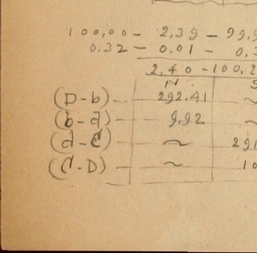 100,00 - 2,39 - 99,9
0.32 - 0,01 - 0,3
2,40 - 100,2
N. S
(D-b) - 292.41 ~
(b-d) - 9.92 ~
(d-C) - ~ 291
(C-D) - ~ 10